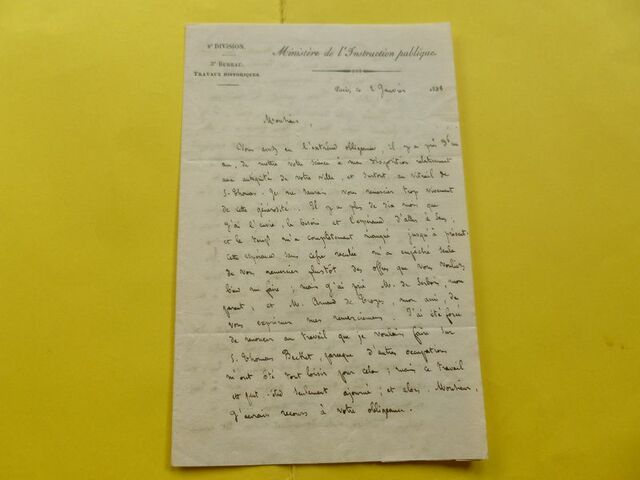 2e DIVISION.
3e BUREAU.
TRAVAUX HISTORIQUES.
Ministère de l'Instruction publique.
Paris, le 2 Janvier 1838
Monsieur,
Vous avez eu l'extrême obligeance, il y a près d'un
an, de mettre votre science à ma disposition relativement
aux antiquités de votre ville, et surtout au vitrail de
S. Thomas. Je ne saurais vous remercier trop vivement
de cette générosité. Il y a plus de dix mois que
j'ai l'envie, le besoin et l'espérance d'aller à Sens,
et le temps m'a complètement manqué jusqu'à présent.
Cette espérance sans cesse reculée m'a empêché seule
de vous remercier plustôt des offres que vous vouliez
bien me faire; mais j'ai prié M. de
et M. Arnaud de Troyes, mon ami, de
vous exprimer mes remerciemens. J'ai été forcé
de renoncer au travail que je voulais faire sur
S. Thomas Becket, parceque d'autres occupations
m'ont ôté tout loisir pour cela; mais ce travail
est peut-être seulement ajourné; et alors, Monsieur,
j'aurais recours à votre obligeance.